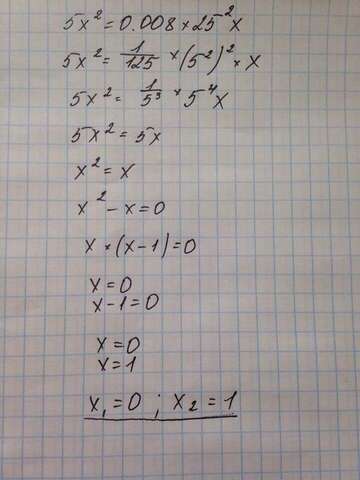 5x² = 0.008 × 25² x
5x² = 1/125 × (5²)² × x
5x² = 1/5³ × 5⁴x
5x² = 5x
x² = x
x² - x = 0
x × (x - 1) = 0
x = 0
x - 1 = 0
x = 0
x = 1
x₁ = 0 ; x₂ = 1